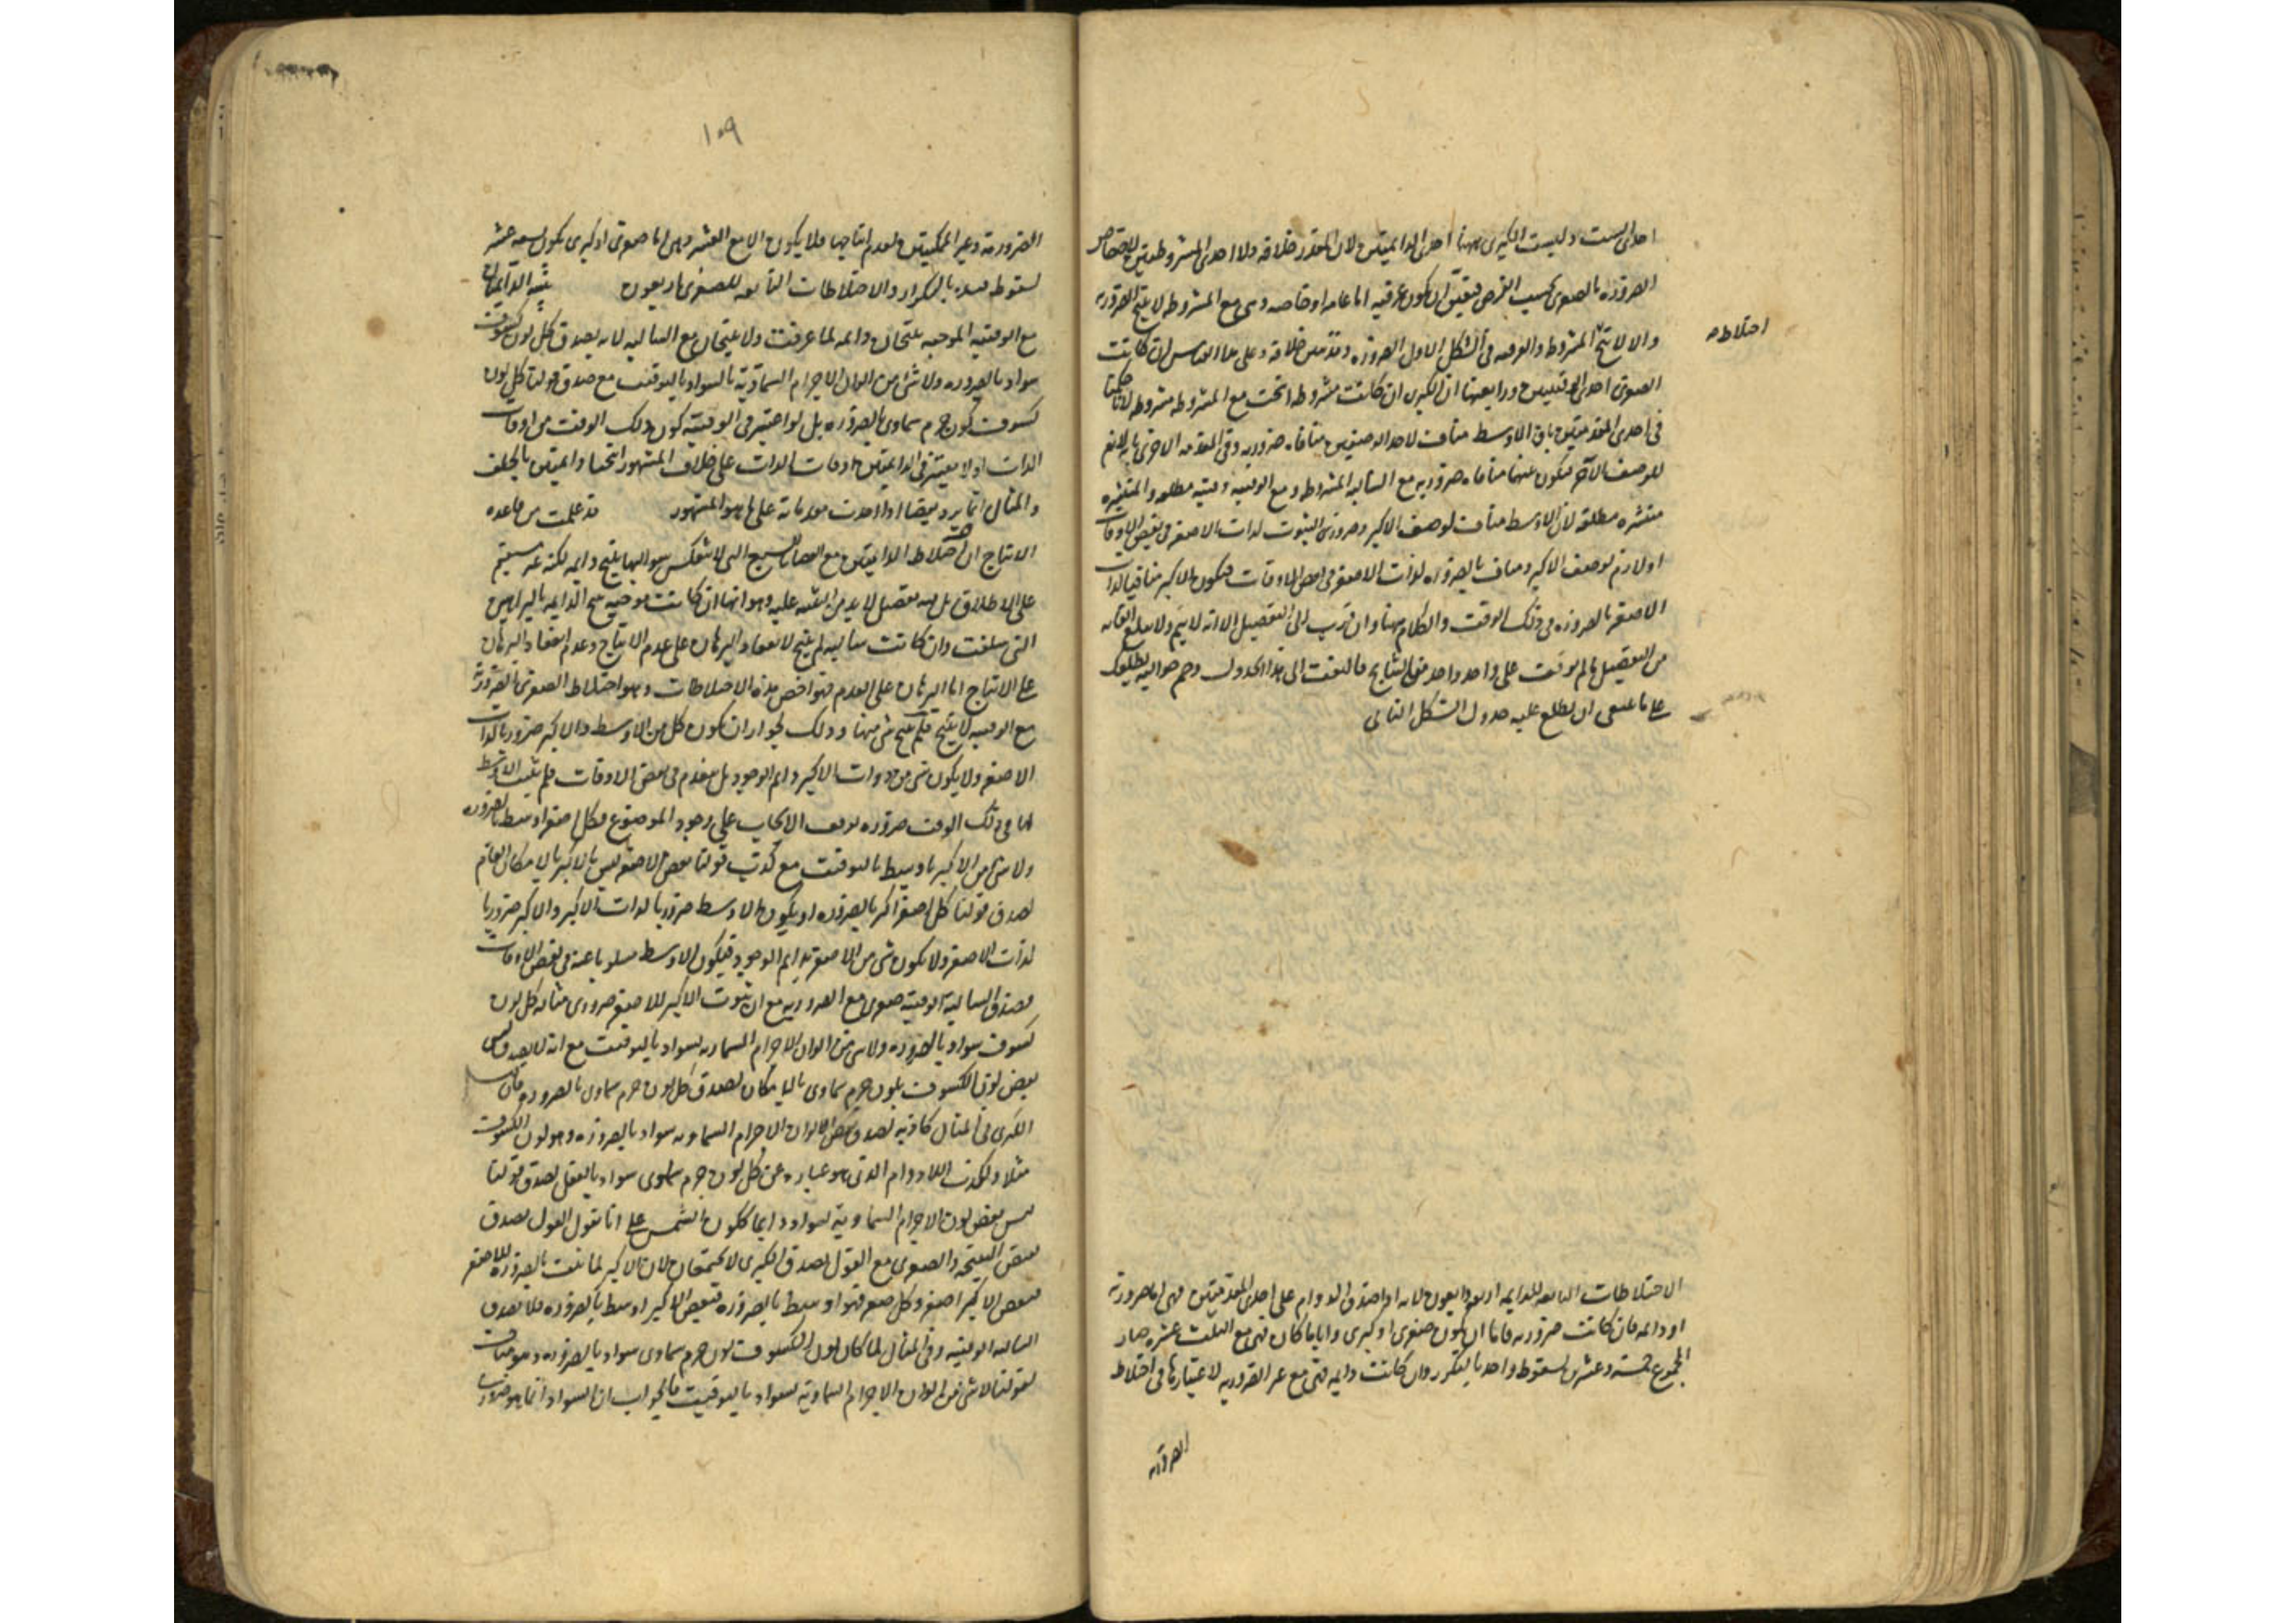 احدى الست وليست الكبرى ههنا احدى الدايمتين لان المقدر خلافه ولا احدى المشروطتين لاختصاص
الضرورة بالصغرى بحسب الفرض فتعين ان يكون عرفيه اما عامه او خاصه وهى مع المشروطه لا ينتج الضرورة
اختلاطه
والا لانتج المشروطه والعرفيه فى الشكل الاول الضرورة وقد تبين خلافه وعلى هذا القياس ان كانت
الصغرى احدى الوقتيتين ورابعها ان الكبرى ان كانت مشروطه انتجت مع المشروطه مشروطه لانا حكمنا
فى احدى المقدمتين بان الاوسط مناف لاحد الوصفين منافاه ضروريه وفى المقدمه الاخرى بانه لازم
للوصف الآخر فيكون بينهما منافاه ضروريه مع السالبه المشروطه ومع الوقتيه وقتيه مطلقه والمنتشره
منتشره مطلقه لان الاوسط مناف لوصف الاكبر وضرورى الثبوت لذات الاصغر فى بعض الاوقات
او لازم لوصف الاكبر ومناف بالضروره لذات الاصغر فى بعض الاوقات فيكون الاكبر منافيا لذات
الاصغر بالضروره فى ذلك الوقت والكلام ههنا وان قرب الى التفصيل الا انه لا يتم ولا يبلغ الغايه
من التفصيل ما لم يوقف على واحد واحد من النتايج فالتفت الى هذا الجدول وحم حواليه يطلعك
على ما ينبغى ان يطلع عليه جدول الشكل الثانى
الاختلاطات التابعه للدايمه اربعه واربعون لانه اذا صدق الدوام على احدى المقدمتين فهى اما ضرورية
او دايمه فان كانت ضروريه فاما ان يكون صغرى او كبرى واياما كان فهى مع الثلث عشره صار
المجموع خمسه وعشرين لسقوط واحد بالتكرر وان كانت دايمه فهى مع غير الضروريه لاعتبارها فى اختلاط
الضرورية
١٠٩
الضرورية وغير الممكنتين لعدم انتاجها فلا يكون الا مع العشر وهى اما صغرى او كبرى يكون تسعه عشر
لسقوط عدد بالتكرار والاختلاطات التابعه للصغرى اربعون ينتج الدايمتان
مع الوقتيه الموجبه ينتجان دايمه لما عرفت ولا ينتجان مع السالبه لانه يصدق كل لون كسوف
سواد بالضروره ولا شئ من الوان الاجرام السماوية بالسواد بالتوقيت مع صدق قولنا كل لون
كسوف لون جرم سماوى بالضروره بل لو اعتبر فى الوقتية كون ذلك الوقت من اوقات
الذات او لا يعتبر فى الدايمتين اوقات الذات على خلاف المشهور انتجتا دايمتين بالخلف
والمثال انما يرد نقضا اذا اخذت مقدماته على ما هو المشهور قد علمت من قاعده
الانتاج ان اختلاط الدايمتين مع القضايا السبع التى لا تنعكس سوالبها ينتج دايمه لكنه غير مستقيم
على الاطلاق بل فيه تفصيل لا بد من التنبه عليه وهو انها ان كانت موجبه ينتج الدايمه بالبراهين
التى سلفت وان كانت سالبه لم ينتج لانعقاد البرهان على عدم الانتاج وعدم انعقاد البرهان
على الانتاج اما البرهان على العدم فهو اخص هذه الاختلاطات وهو اختلاط الصغرى الضرورية
مع الوقتيه لا ينتج فلم ينتج شى منها وذلك لجواز ان يكون كل من الاوسط والاكبر ضروريا لذات
الاصغر ولا يكون شى من ذوات الاكبر دايم الوجود بل ينعدم فى بعض الاوقات فلم يثبت الاوسط
لها فى ذلك الوقت ضروره توقف الايجاب على وجود الموضوع فكل اصغر اوسط بالضروره
ولا شى من الاكبر باوسط بالتوقيت مع كذب قولنا بعض الاصغر ليس بالاكبر بالامكان العام
لصدق قولنا كل اصغر اكبر بالضروره او يكون الاوسط ضروريا لذات الاكبر والاكبر ضروريا
لذات الاصغر ولا يكون شى من الاصغر دايم الوجود فيكون الاوسط مسلوبا عنه فى بعض الاوقات
فصدق السالبة الوقتية صغرى مع الضروريه مع ان ثبوت الاكبر للاصغر ضرورى مثاله كل لون
كسوف سواد بالضروره ولا شى من الوان الاجرام السماويه بسواد بالتوقيت مع انه لا يصدق ليس
بعض لون الكسوف بلون جرم سماوى بالامكان لصدق كل لون جرم سماوى بالضروره فان
الكبرى فى المثال كاذبه لصدق بعض الوان الاجرام السماويه سواد بالضروره وهو لون الكسوف
مثلا ولكذب اللادوام الذى هو عباره عن كل لون جرم سماوى سواد بالفعل لصدق قولنا
ليس بعض لون الاجرام السماوية بسواد دايما كلون الشمس على انا نقول القول بصدق
نقيض النتيجه والصغرى مع القول بصدق الكبرى لا يجتمعان لان الاكبر لما ثبت بالضروره للاصغر
فبعض الاكبر اصغر وكل اصغر فهو اوسط بالضروره فبعض الاكبر اوسط بالضروره فلا يصدق
السالبه الوقتيه وفى المثال لما كان لون الكسوف لون جرم سماوى سواد بالضروره وهو مناف
لقولنا لا شى من الوان الاجرام السماوية بسواد بالتوقيت فالجواب ان السواد انما هو ضرورى